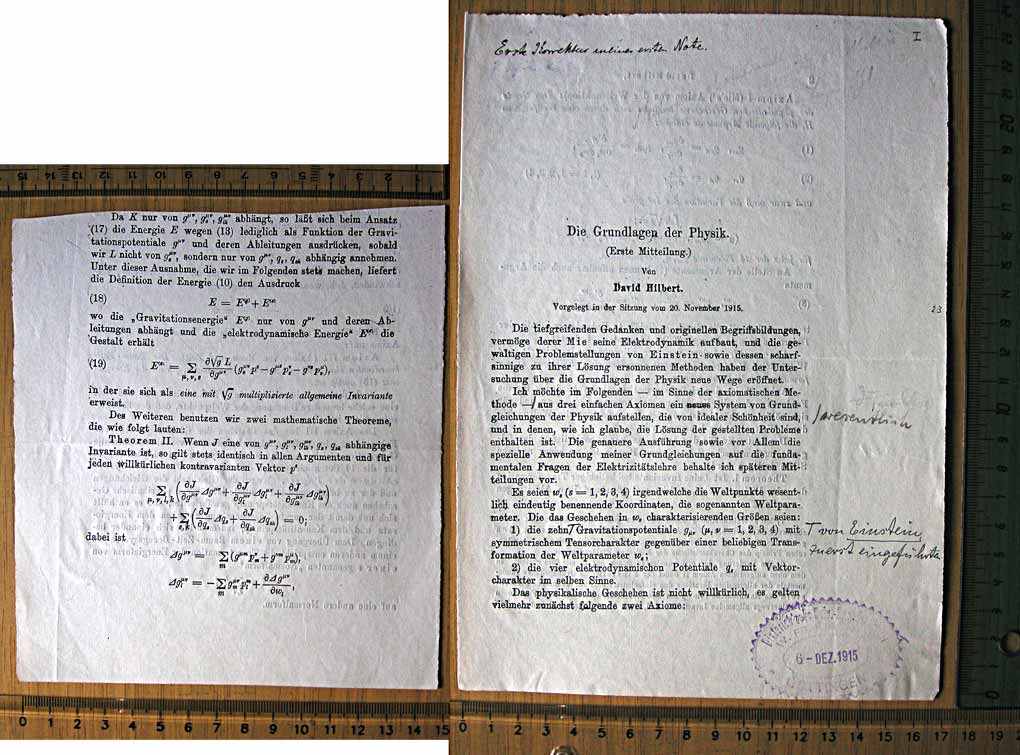 Da K nur von g^μν, g_s^μν, g_lk^μν abhängt, so läßt sich beim Ansatz
(17) die Energie E wegen (13) lediglich als Funktion der Gravi-
tationspotentiale g^μν und deren Ableitungen ausdrücken, sobald
wir L nicht von g_s^μν, sondern nur von g^μν, q_s, q_sk abhängig annehmen.
Unter dieser Ausnahme, die wir im Folgenden stets machen, liefert
die Definition der Energie (10) den Ausdruck
(18) E = E^(g) + E^(e)
wo die „Gravitationsenergie“ E^(g) nur von g^μν und deren Ab-
leitungen abhängt und die „elektrodynamische Energie“ E^(e) die
Gestalt erhält
(19) E^(e) = Σ_μ,ν,s ∂√g L/∂g^μν (g_s^μν p^s − g^μs p_s^ν − g^νs p_s^μ),
in der sie sich als eine mit √g multiplizierte allgemeine Invariante
erweist.
Des Weiteren benutzen wir zwei mathematische Theoreme,
die wie folgt lauten:
Theorem II. Wenn J eine von g^μν, g_l^μν, g_lk^μν, q_s, q_sk abhängige
Invariante ist, so gilt stets identisch in allen Argumenten und für
jeden willkürlichen kontravarianten Vektor p^s
Σ_μ,ν,l,k (∂J/∂g^μν Δg^μν + ∂J/∂g_l^μν Δg_l^μν + ∂J/∂g_lk^μν Δg_lk^μν)
+ Σ_s,k (∂J/∂q_s Δq_s + ∂J/∂q_sk Δq_sk) = 0;
dabei ist
Δg^μν = Σ_m (g^μm p_m^ν + g^νm p_m^μ),
Δg_l^μν = − Σ_m g_m^μν p_l^m + ∂Δg^μν/∂w_l,
I
Erste Korrektur meiner ersten Note.
Die Grundlagen der Physik.
(Erste Mitteilung.)
Von
David Hilbert.
Vorgelegt in der Sitzung vom 20. November 1915.
23
Die tiefgreifenden Gedanken und originellen Begriffsbildungen,
vermöge derer Mie seine Elektrodynamik aufbaut, und die ge-
waltigen Problemstellungen von Einstein sowie dessen scharf-
sinnige zu ihrer Lösung ersonnenen Methoden haben der Unter-
suchung über die Grundlagen der Physik neue Wege eröffnet.
Ich möchte im Folgenden — im Sinne der axiomatischen Me-
thode — aus drei einfachen Axiomen ein neues System von Grund-
gleichungen der Physik aufstellen, die von idealer Schönheit sind,
und in denen, wie ich glaube, die Lösung der gestellten Probleme
enthalten ist. Die genauere Ausführung sowie vor Allem die
spezielle Anwendung meiner Grundgleichungen auf die funda-
mentalen Fragen der Elektrizitätslehre behalte ich späteren Mit-
teilungen vor.
Es seien w_s (s = 1, 2, 3, 4) irgendwelche die Weltpunkte wesent-
lich eindeutig benennende Koordinaten, die sogenannten Weltpara-
meter. Die das Geschehen in w_s charakterisierenden Größen seien:
1) die zehn Gravitationspotentiale g_μν (μ, ν = 1, 2, 3, 4) mit
symmetrischem Tensorcharakter gegenüber einer beliebigen Trans-
formation der Weltparameter w_s;
von Einstein
zuerst eingeführte
2) die vier elektrodynamischen Potentiale q_s mit Vektor-
charakter im selben Sinne.
Das physikalische Geschehen ist nicht willkürlich, es gelten
vielmehr zunächst folgende zwei Axiome:
6 - DEZ. 1915